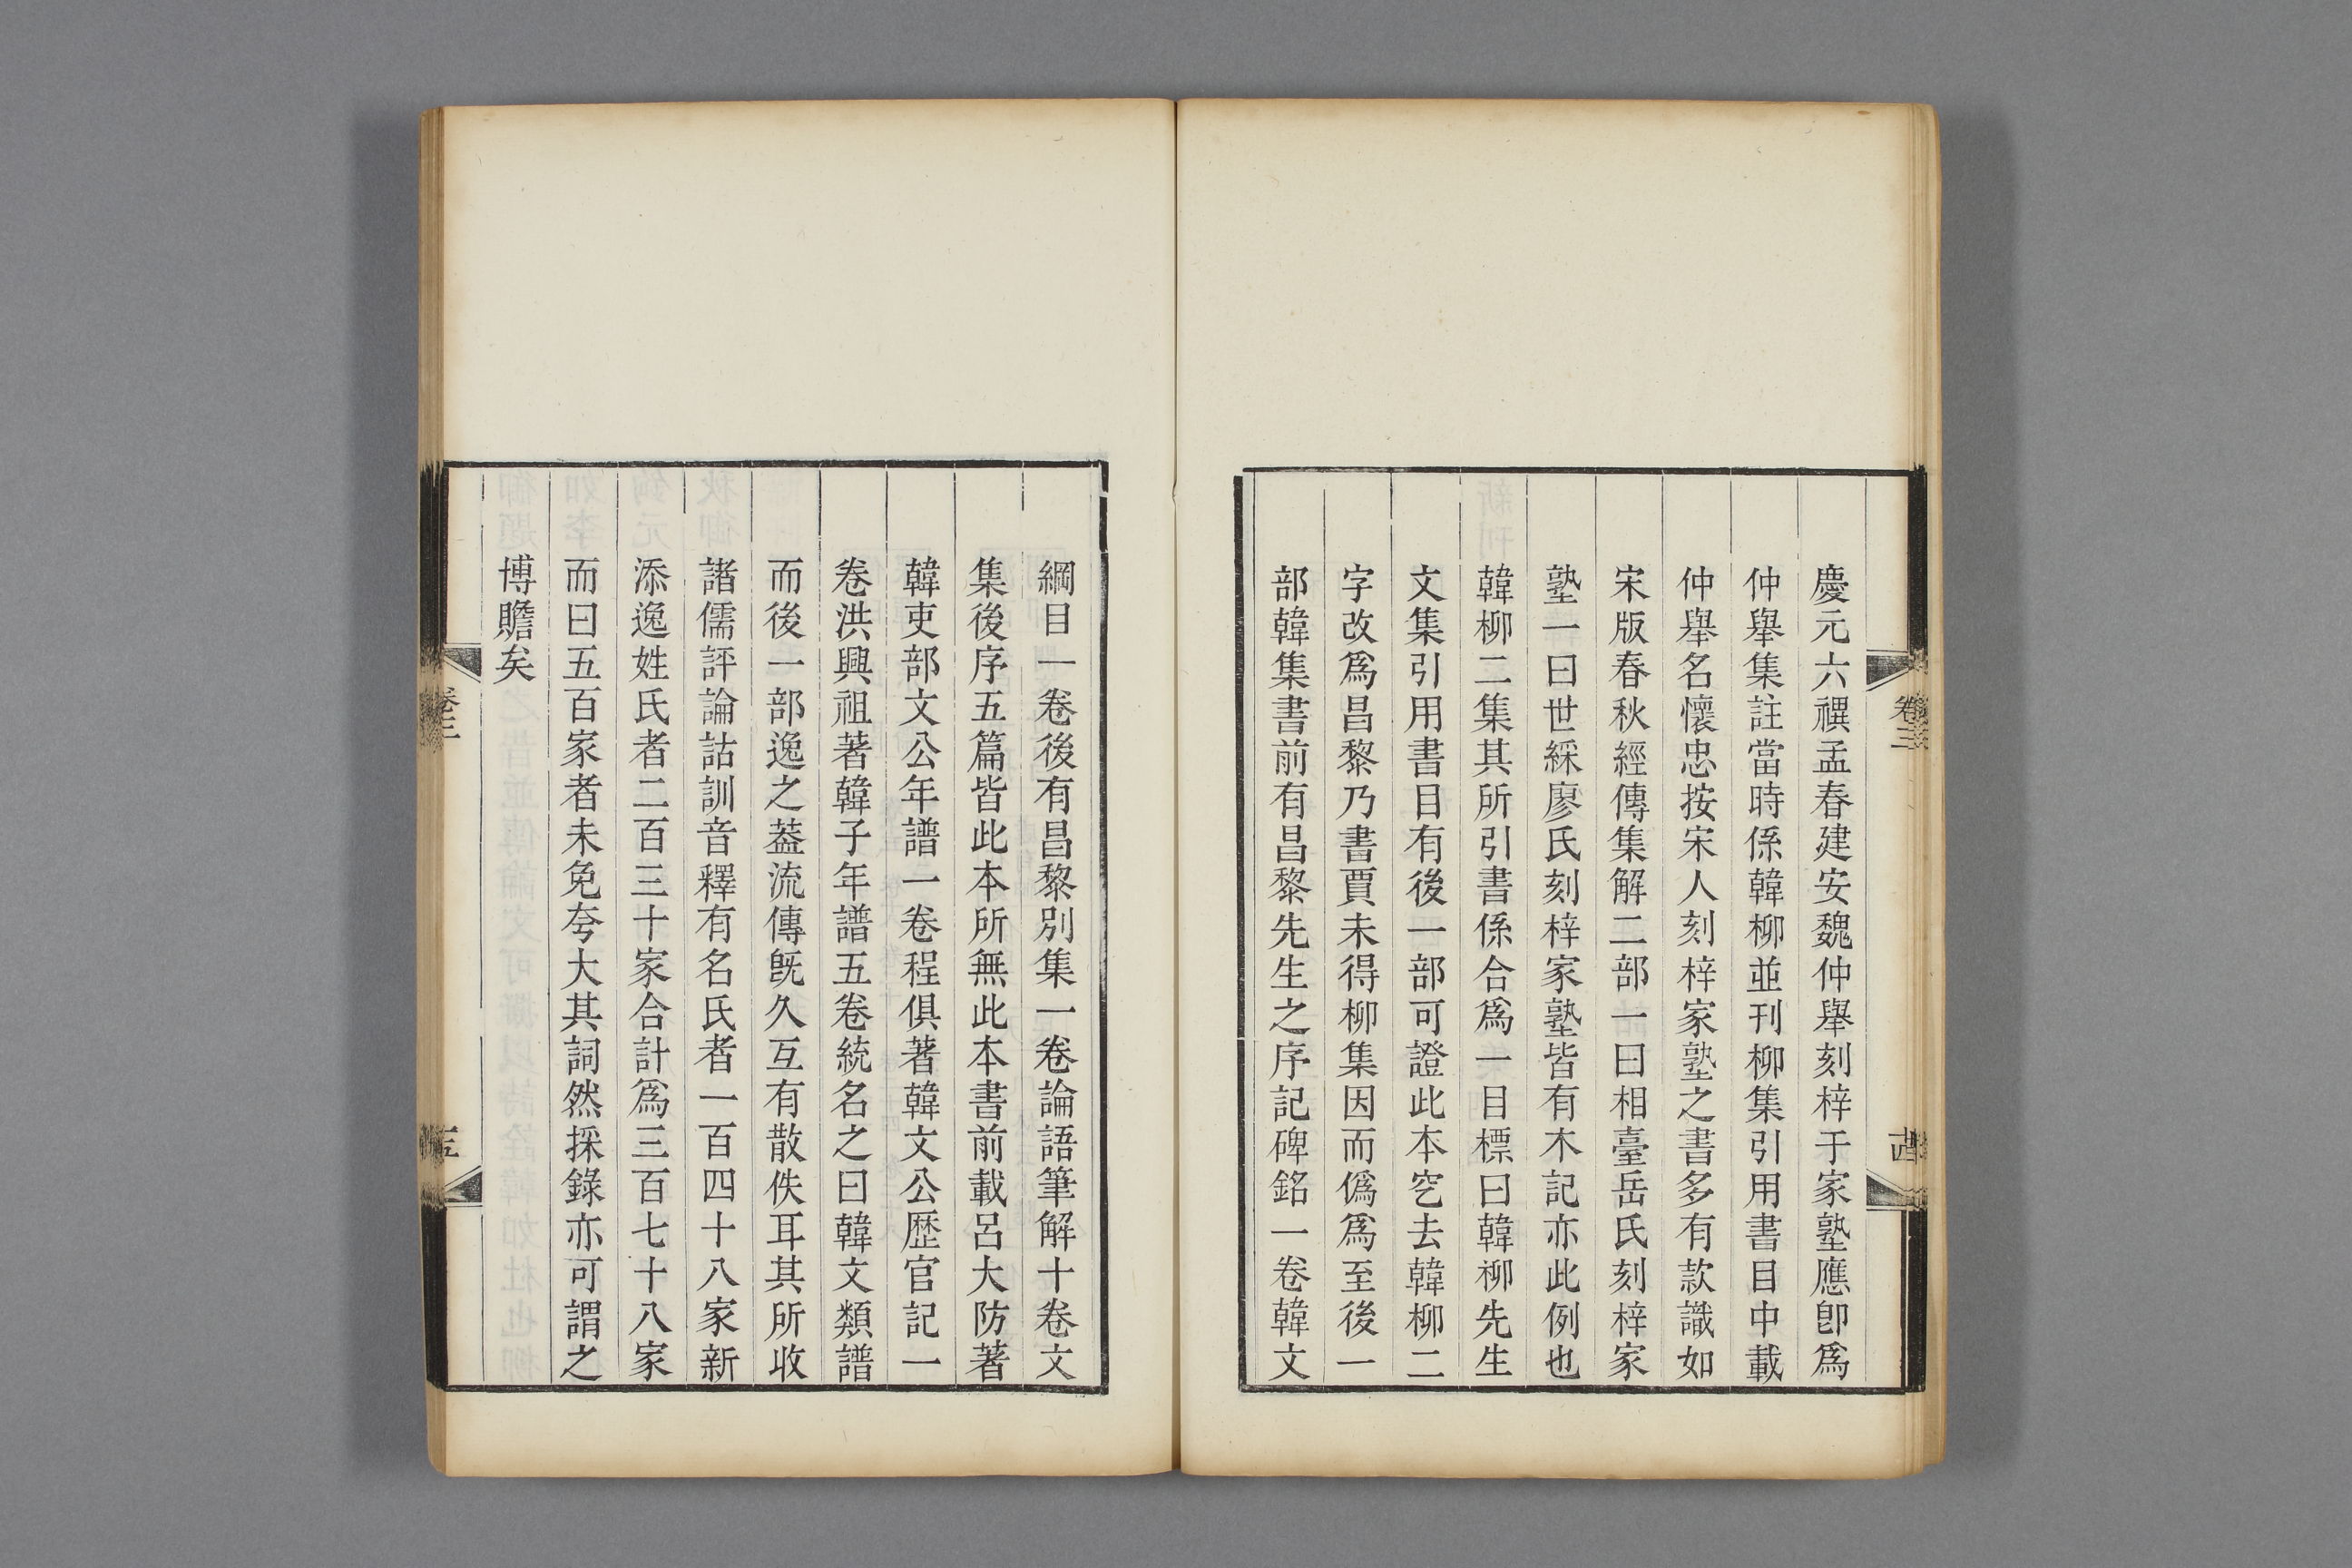 慶元六禩孟春建安魏仲舉刻梓于家塾應卽爲
仲舉集註當時係韓柳並刊柳集引用書目中載
仲舉名懷忠按宋人刻梓家塾之書多有款識如
宋版春秋經傳集解二部一曰相臺岳氏刻梓家
塾一曰世綵廖氏刻梓家塾皆有木記亦此例也
韓柳二集其所引書係合爲一目標曰韓柳先生
文集引用書目有後一部可證此本穵去韓柳二
字改爲昌黎乃書賈未得柳集因而僞爲至後一
部韓集書前有昌黎先生之序記碑銘一卷韓文
綱目一卷後有昌黎別集一卷論語筆解十卷文
集後序五篇皆此本所無此本書前載呂大防著
韓吏部文公年譜一卷程俱著韓文公歷官記一
卷洪興祖著韓子年譜五卷統名之曰韓文類譜
而後一部逸之葢流傳旣久互有散佚耳其所收
諸儒評論詁訓音釋有名氏者一百四十八家新
添逸姓氏者二百三十家合計爲三百七十八家
而曰五百家者未免夸大其詞然採錄亦可謂之
博贍矣